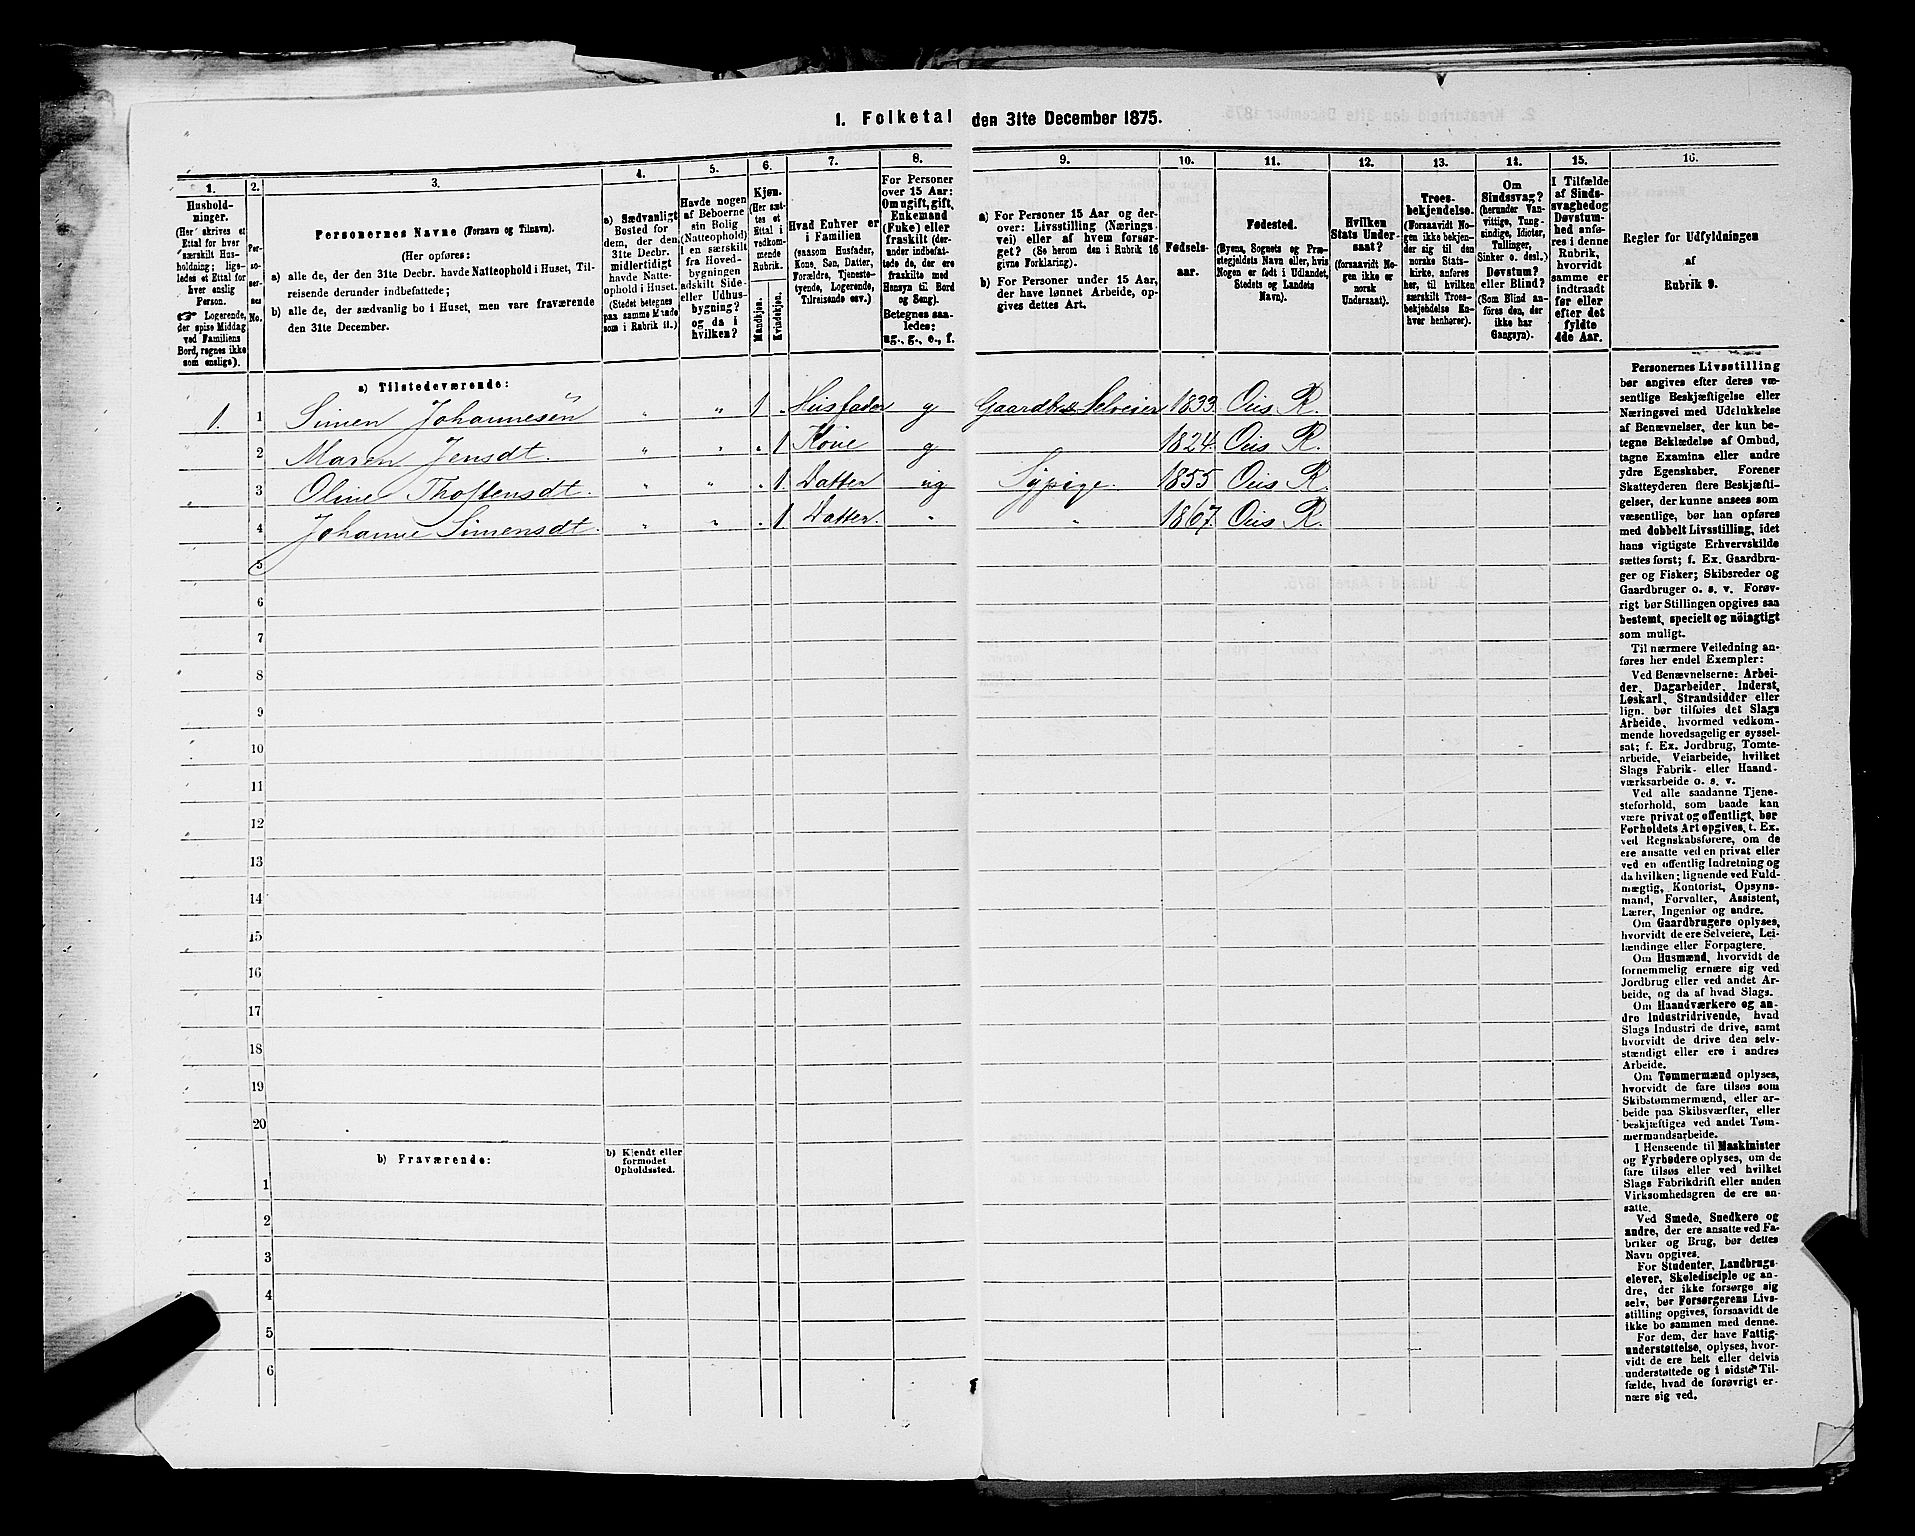 1. Folketal den 31te December 1875.
1.
Hushold-
ninger.
(Her skrives et
Ettal for hver
særskilt Hus-
holdning; lige-
ledes et Ettal for
hver enslig
Person.
☞ Logerende,
der spise Middag
ved Familiens
Bord, regnes ikke
som enslige).
2.
Per-
so-
ner-
nes
No.
3.
Personernes Navne (Fornavn og Tilnavn).
(Her opføres:
a) alle de, der den 31te Decbr. havde Natteophold i Huset, Til-
reisende derunder indbefattede;
b) alle de, der sædvanlig bo i Huset, men vare fraværende
den 31te December.
4.
a) Sædvanligt
Bosted for
dem, der den
31te Decbr.
midlertidigt
havde Natte-
ophold i Huset.
(Stedet betegnes
paa samme Maade
som i Rubrik 11.)
5.
Havde nogen
af Beboerne
sin Bolig
(Natteophold)
i en særskilt
fra Hoved-
bygningen
adskilt Side-
eller Udhus-
bygning?
og da i
hvilken?
6.
Kjøn.
(Her sæt-
tes et
Ettal i
vedkom-
mende
Rubrik.
Mandkjøn.
Kvindekjøn.
7.
Hvad Enhver er
i Familien
(saasom Husfader,
Kone, Søn, Datter,
Forældre, Tjeneste-
tyende, Logerende,
Tilreisende osv.)
8.
For Personer
over 15 Aar:
Om ugift, gift,
Enkemand
(Enke) eller
fraskilt (der-
under indbefat-
tede de, der ere
fraskilte med
Hensyn til Bord
og Seng).
Betegnes saa-
ledes:
ug., g., e., f.
9.
a) For Personer 15 Aar og der-
over: Livsstilling (Nærings-
vei) eller af hvem forsør-
get? (Se herom den i Rubrik 16
givne Forklaring).
b) For Personer under 15 Aar,
der have lønnet Arbeide, op-
gives dettes Art.
10.
Fødsels-
aar.
11.
Fødested.
(Byens, Sognets og Præ-
stegjeldets Navn eller, hvis
Nogen er født i Udlandet,
Stedets og Landets
Navn).
12.
Hvilken
Stats Under-
saat?
(forsaavidt No-
gen ikke er
norsk
Undersaat).
13.
Troes-
bekjendelse.
(Forsaavidt No-
gen ikke bekjen-
der sig til den
norske Stats-
kirke, anføres
her, til hvilken
særskilt Troes-
bekjendelse En-
hver henhører).
14.
Om
Sindssvag?
(herunder Van-
vittige, Tung-
sindige, Idioter,
Tullinger,
Sinker o. desl.).
Døvstum?
eller Blind?
(Som Blind an-
føres den, der
ikke har
Gangsyn).
15.
I Tilfælde
af Sinds-
svaghed og
Døvstum-
hed anfø-
res i denne
Rubrik,
hvorvidt
samme er
indtraadt
før eller
efter det
fyldte
4de Aar.
16.
Regler for Udfyldningen
af
Rubrik 9.
a) Tilstedeværende:
1. 1 Simen Johannesen " " 1 . Husfader g Gaardb. Selveier 1833. Ous R.
2 Maren Jensdt. " " . 1 Kone g 1824. Ous R.
3 Oline Thostensdt. " " . 1 Datter ug Sypige. 1855 Ous R.
4 Johanne Simensdt. " " . 1 Datter. " " 1867. Ous R.
5
6
7
8
9
10
11
12
13
14
15
16
17
18
19
20
b) Fraværende:
b) Kjendt eller
formodet
Opholdssted.
1
2
3
4
5
6
Personernes Livsstilling
bør angives efter deres væ-
sentlige Beskjæftigelse eller
Næringsvei med Udelukkelse
af Benævnelser, der kun be-
tegne Beklædelse af Ombud,
tagne Examina eller andre
ydre Egenskaber. Forener
Skatteyderen flere Beskjæfti-
gelser, der kunne ansees som
væsentlige, bør han opføres
med dobbelt Livsstilling, idet
hans vigtigste Erhvervskilde
sættes først; f. Ex. Gaardbru-
ger og Fisker; Skibsreder og
Gaardbruger o. s. v. Forøv-
rigt bør Stillingen opgives saa
bestemt, specielt og nöiagtigt
som muligt.
Til nærmere Veiledning an-
føres her endel Exempler:
Ved Benævnelserne: Arbei-
der, Dagarbeider, Inderst,
Løskarl, Strandsidder eller
lign. bør tilføies det Slags
Arbeide, hvormed vedkom-
mende hovedsagelig er syssel-
sat; f. Ex. Jordbrug, Tomte-
arbeide, Veiarbeide, hvilket
Slags Fabrik- eller Haand-
værksarbeide o. s. v.
Ved alle saadanne Tjene-
steforhold, som baade kan
være privat og offentligt, bør
Forholdets Art opgives, t. Ex.
ved Regnskabsførere, om de
ere ansatte ved en privat eller
ved en offentlig Indretning og
da hvilken; lignende ved Fuld-
mægtig, Kontorist, Opsyns-
mand, Forvalter, Assistent,
Lærer, Ingeniør og andre.
Om Gaardbrugere oplyses,
hvorvidt de ere Selveiere, Lei-
lændinge eller Forpagtere.
Om Husmænd, hvorvidt de
fornemmelig ernære sig ved
Jordbrug eller ved andet Ar-
beide, og da af hvad Slags.
Om Haandværkere og an-
dre Industridrivende, hvad
Slags Industri de drive, samt
hvorvidt de drive den selv-
stændigt eller ere i andres
Arbeide.
Om Tømmermænd oplyses,
hvorvidt de fare tilsøs som
Skibstømmermænd, eller ar-
beide paa Skibsværfter, eller
beskjæftiges ved andet Tøm-
mermandsarbeide.
I Henseende til Maskinister
og Fyrbødere oplyses, om de
fare tilsøs eller ved hvilket
Slags Fabrikdrift eller anden
Virksomhedsgren de ere an-
satte.
Ved Smede, Snedkere og
andre, der ere ansatte ved Fa-
briker og Brug, bør dettes
Navn opgives.
For Studenter, Landbrugs-
elever, Skoledisciple og an-
dre, der ikke forsørge sig
selv, bør Forsørgerens Livs-
stilling opgives, forsaavidt de
ikke bo sammen med denne.
For dem, der have Fattig-
understøttelse, oplyses, hvor-
vidt de ere helt eller delvis
understøttede og i sidste Til-
fælde, hvad de forøvrigt er-
nære sig ved.